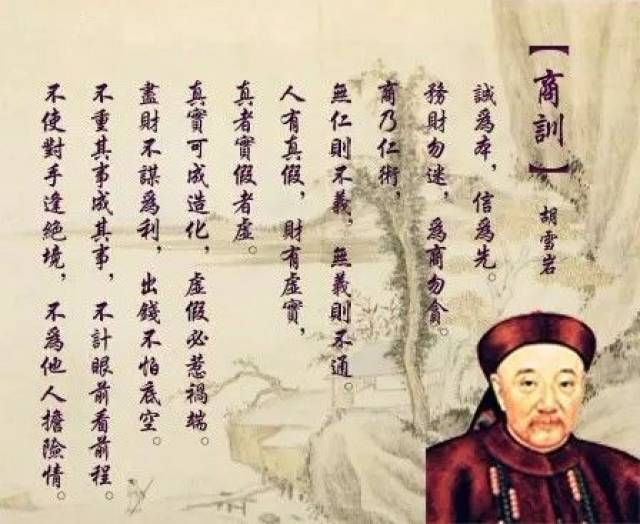 【商訓】
胡雪岩
誠為本，信為先。
務財勿迷，為商勿貪。
商乃仁術，
無仁則不義，無義則不通。
人有真假，財有虛實，
真者實假者虛。
真實可成造化，虛假必惹禍端。
盡財不謀為利，出錢不怕底空。
不重其事成其事，不計眼前看前程。
不使對手逢絕境，不為他人擔險情。